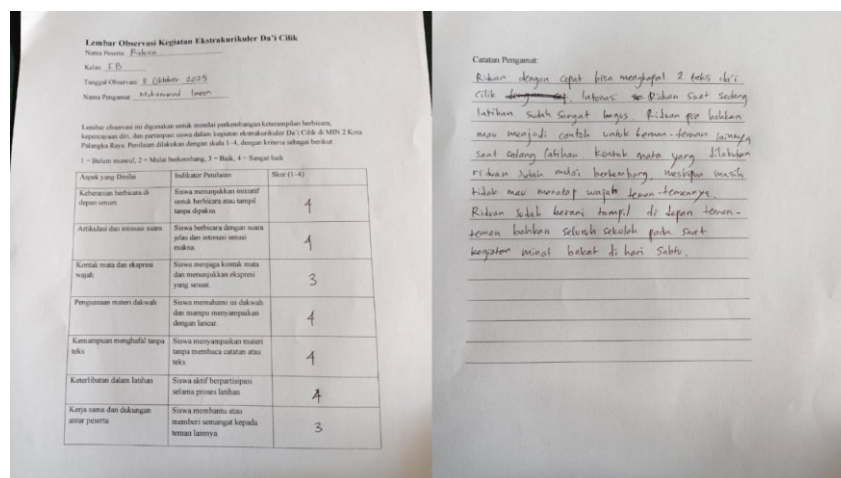 Lembar Observasi Kegiatan Ekstrakurikuler Da'i Cilik
Nama Peserta: Riduan
Kelas: 5 B
Tanggal Observasi: 8 Oktober 2025
Nama Pengamat: Muhammad Imron
Lembar observasi ini digunakan untuk menilai perkembangan keterampilan berbicara,
kepercayaan diri, dan partisipasi siswa dalam kegiatan ekstrakurikuler Da'i Cilik di MIN 2 Kota
Palangka Raya. Penilaian dilakukan dengan skala 1–4, dengan kriteria sebagai berikut:
1 = Belum muncul, 2 = Mulai berkembang, 3 = Baik, 4 = Sangat baik
Aspek yang Dinilai Indikator Penilaian Skor (1-4)
Keberanian berbicara di
depan umum
Siswa menunjukkan inisiatif
untuk berbicara atau tampil
tanpa dipaksa.
4
Artikulasi dan intonasi suara
Siswa berbicara dengan suara
jelas dan intonasi sesuai
makna.
4
Kontak mata dan ekspresi
wajah
Siswa menjaga kontak mata
dan menunjukkan ekspresi
yang sesuai.
3
Penguasaan materi dakwah
Siswa memahami isi dakwah
dan mampu menyampaikan
dengan lancar.
4
Kemampuan menghafal tanpa
teks
Siswa menyampaikan materi
tanpa membaca catatan atau
teks.
4
Keterlibatan dalam latihan
Siswa aktif berpartisipasi
selama proses latihan.
4
Kerja sama dan dukungan
antar peserta
Siswa membantu atau
memberi semangat kepada
teman lainnya.
3
Catatan Pengamat:
Riduan dengan cepat bisa menghapal 2 teks da'i
cilik. Intonasi Riduan saat sedang
latihan sudah sangat bagus. Riduan bahkan
mau menjadi contoh untuk teman-teman lainnya
saat sedang latihan. Kontak mata yang dilakukan
riduan sudah mulai berkembang, meskipun masih
tidak mau menatap wajah teman-temannya.
Riduan sudah berani tampil di depan teman-
teman bahkan seluruh sekolah pada saat
kegiatan minat bakat di hari Sabtu.